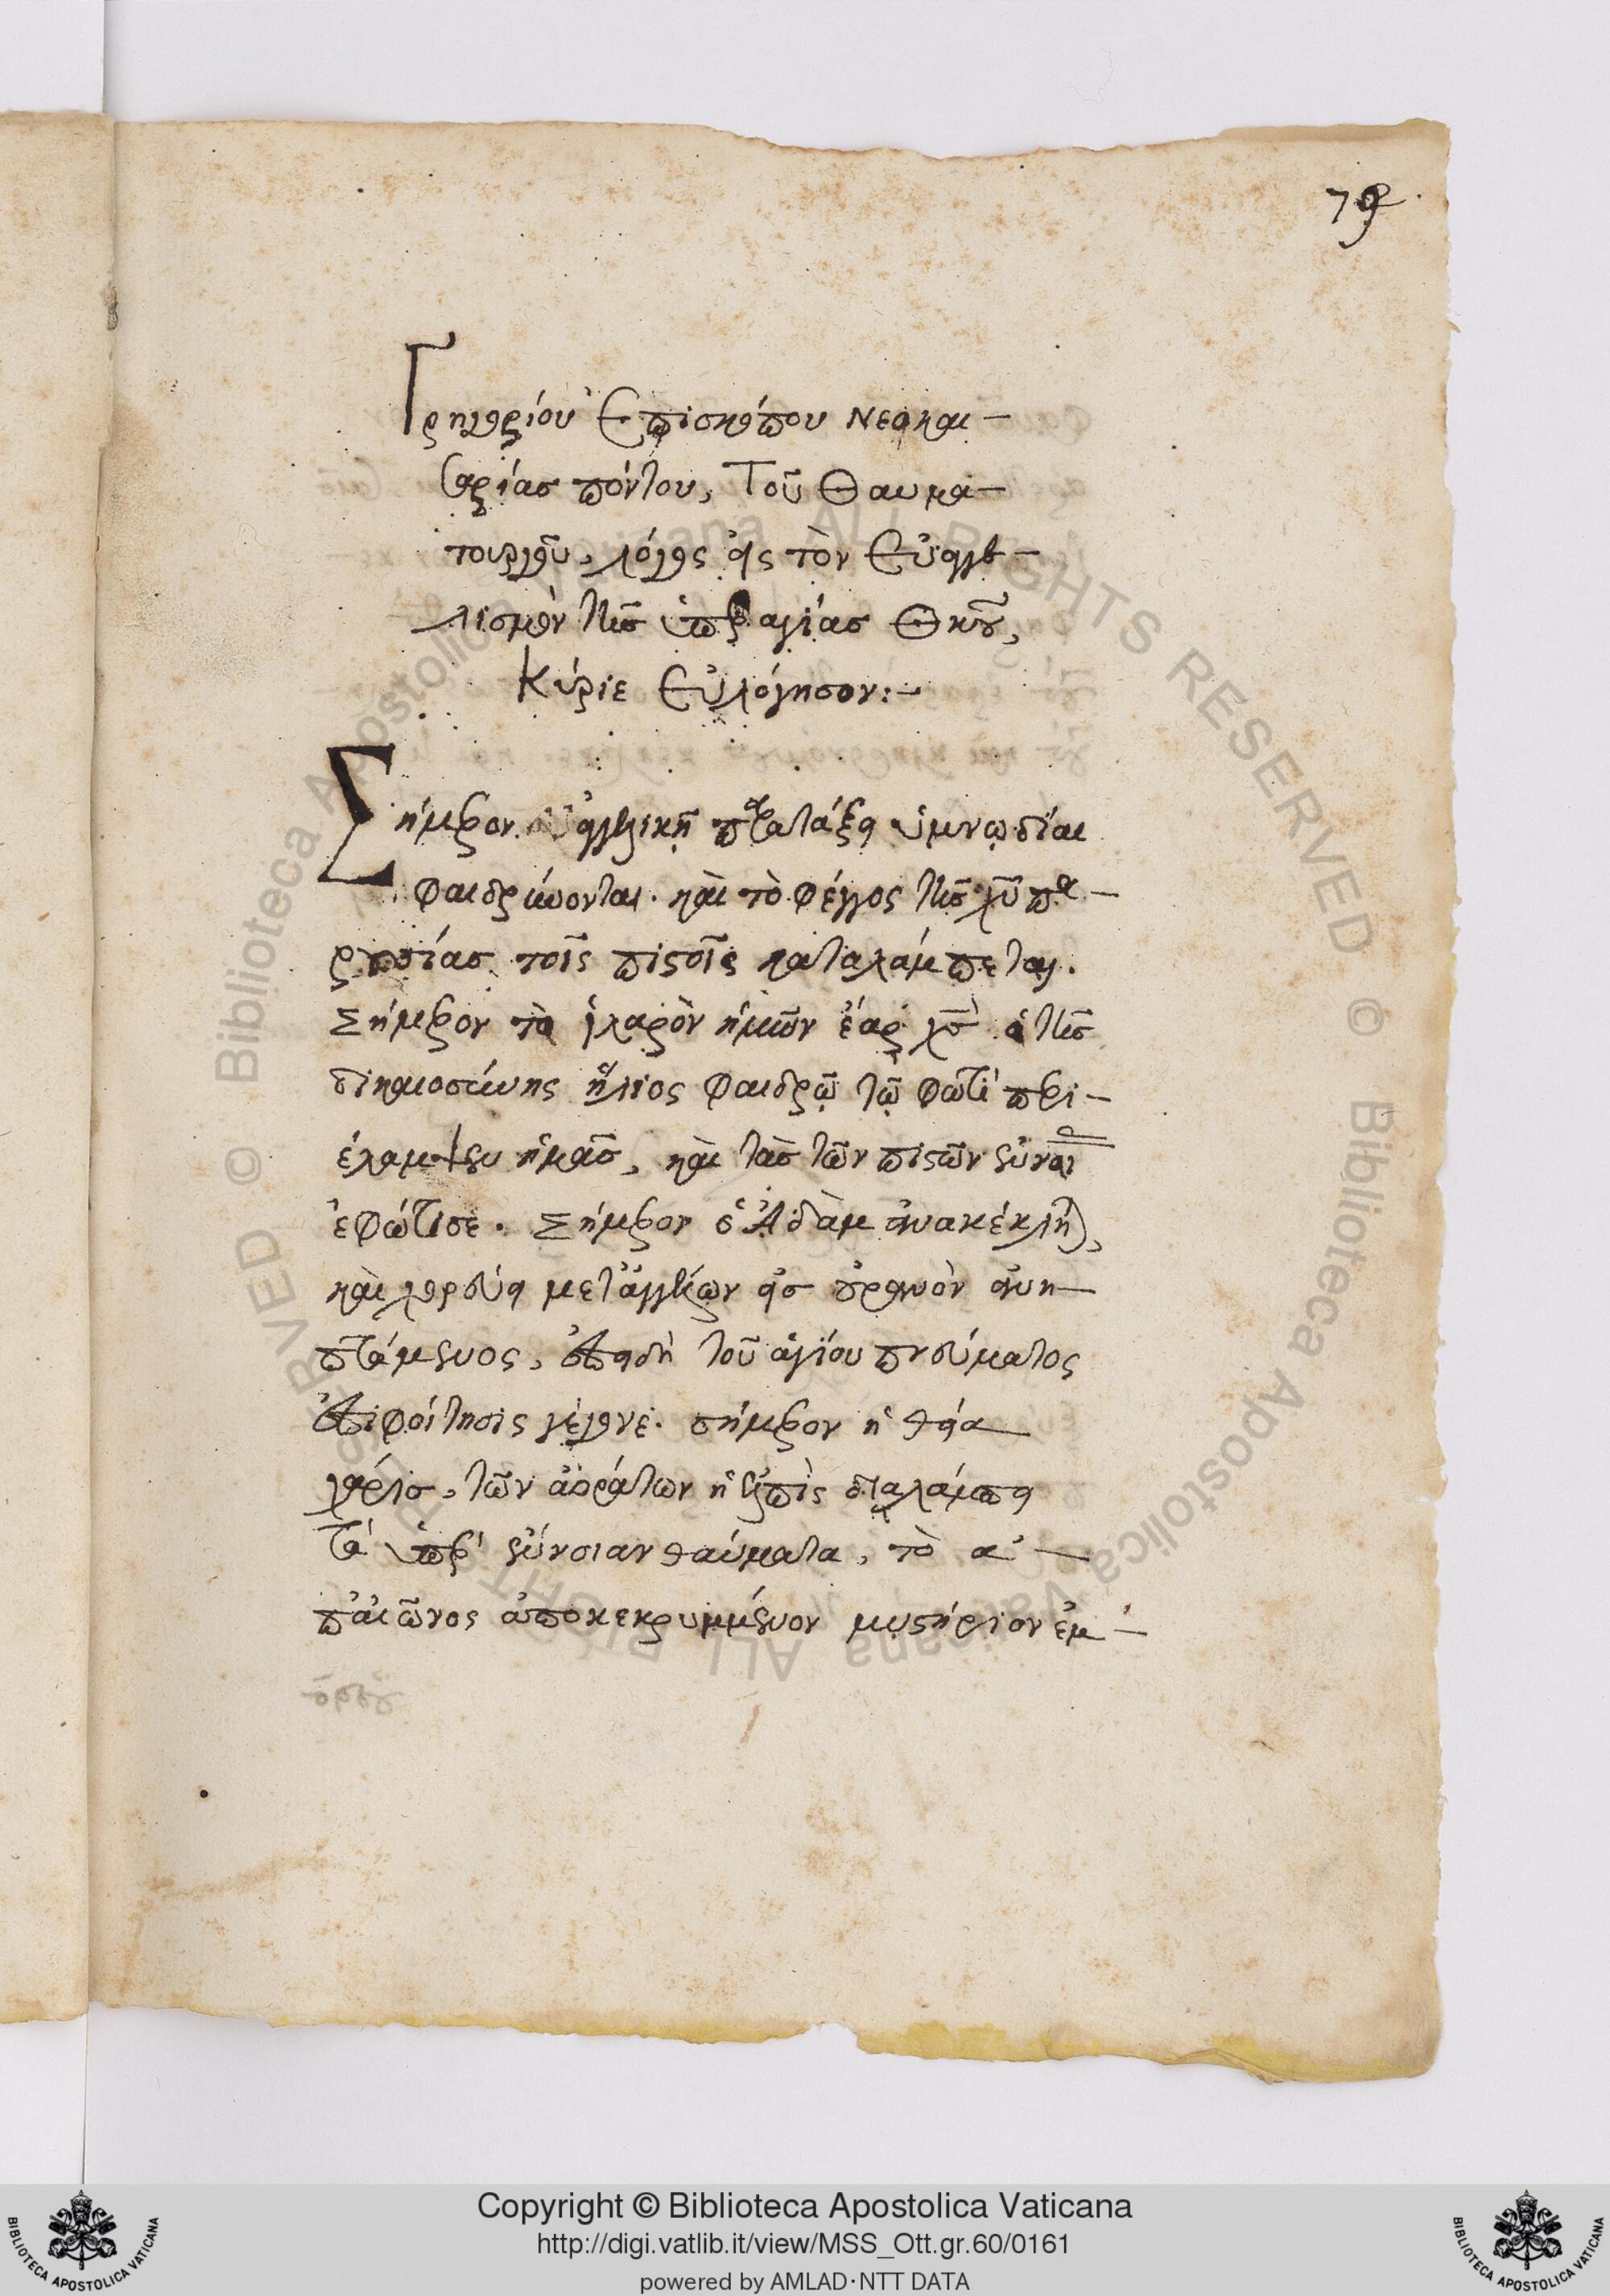 79
Γρηγορίου Ἐπισκόπου Νεοκαι-
σαρίας πόντου, Τοῦ Θαυμα-
τουργοῦ, λόγος εἰς τὸν Εὐαγγε-
λισμὸν τῆς ὑπεραγίας Θκου,
Κύριε Εὐλόγησον:-
Σήμερον ἀγγελικῇ παρατάξει ὑμνῳδίαι
φαιδρύνονται. καὶ τὸ φέγγος τῆς χυ πα-
ρουσίας τοῖς πιστοῖς καταλάμπεται.
Σήμερον τὸ ἱλαρὸν ἡμῶν ἔαρ χς ὁ τῆς
δικαιοσύνης ἥλιος φαιδρῷ τῷ φωτὶ περι-
έλαμψεν ἡμᾶς, καὶ τὰς τῶν πιστῶν ἐννοί
ἐφώτισε. Σήμερον ὁ Ἀδὰμ ἀνακέκληται,
καὶ χορεύει μετ' ἀγγέλων εἰς οὐρανὸν ἀνι-
πτάμενος, ἐπειδὴ τοῦ ἁγίου πνεύματος
ἐπιφοίτησις γέγονε. σήμερον ἡ θεία
χάρις, τῶν ἀοράτων ἡ ἐλπὶς διαλάμπει
τὰ ὑπὲρ ἔννοιαν θαύματα, τὸ ἀ-
π' αἰῶνος ἀποκεκρυμμένον μυστήριον ἐμ-
Copyright © Biblioteca Apostolica Vaticana
http://digi.vatlib.it/view/MSS_Ott.gr.60/0161
powered by AMLAD·NTT DATA